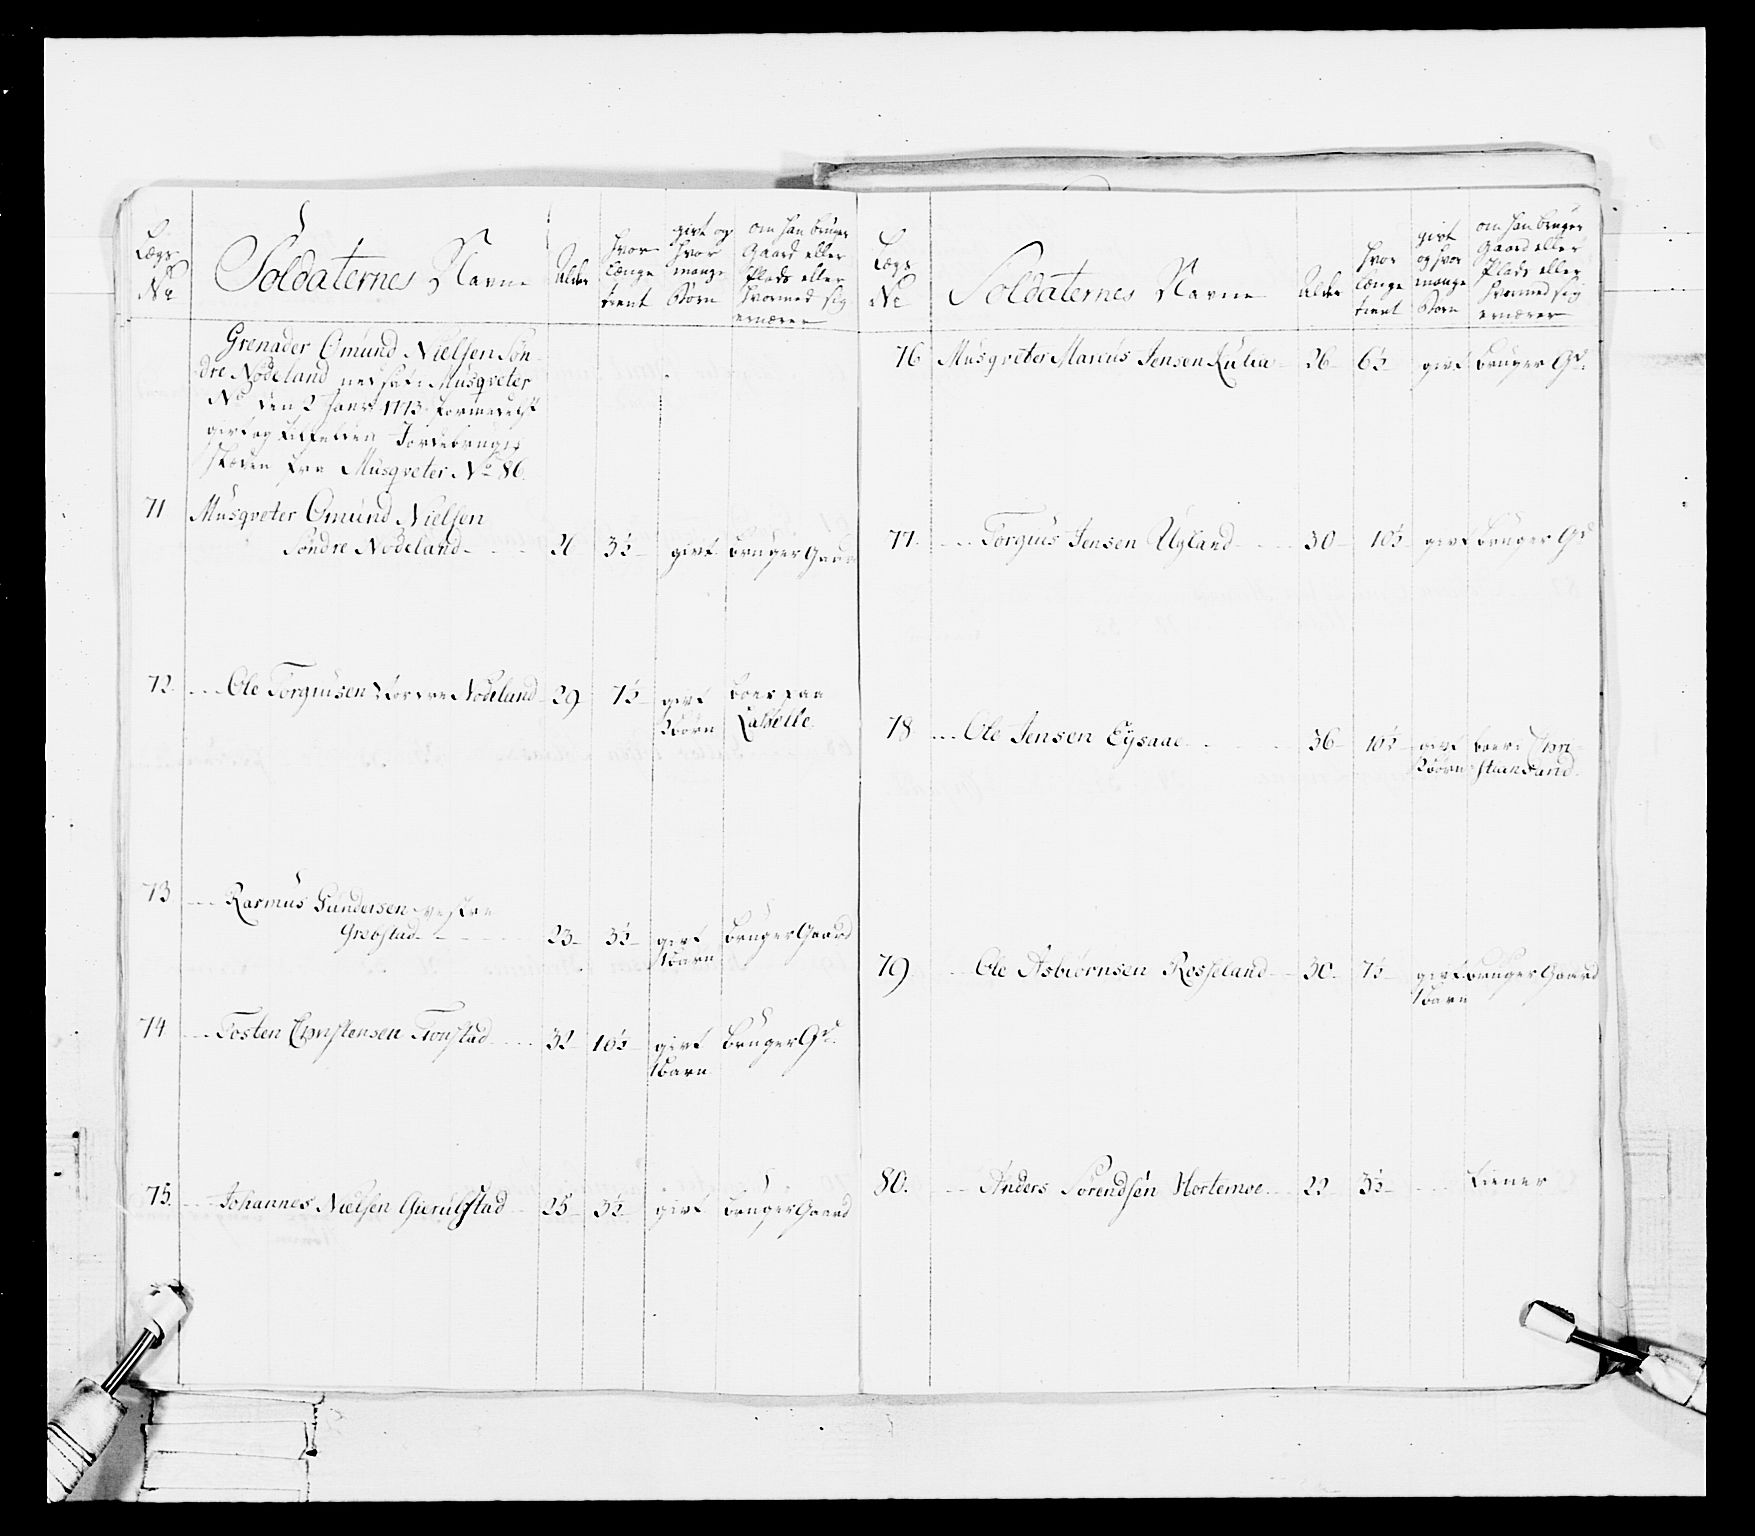 Lægs
No
Soldaternes Navne
Alder
hvor
længe
tient
givt og
hvor
mange
Børn
om han bruger
Gaard eller
Plads eller
hvormed sig
ernærer
Grenader Omund Nielsen Søn-
dre Nodeland Musqveter
No den 2 Janr 1773
Jordebruger
fra Musqveter No 86.
71 Musqveter Omund Nielsen
Søndre Nodeland 26 3½ givt bruger Gaard
72. Ole Torgiusen Nodeland 29 7½ givt boer paa
2 børn
73 Rasmus Gundersen vestre
Grebstad 23 3½ givt bruger Gaard
1 barn
74 Tosten Christensen Tronstad 32 10½ givt bruger Gd.
1 barn
75. Johannes Nielsen Gierulfstad 25 3½ givt bruger Gaard
Lægs
No
Soldaternes Navne
Alder
hvor
længe
tient
givt
og hvor
mange
Børn
om han bruger
Gaard eller
Plads eller
hvormed sig
ernærer
76 Musqveter Marcus Jensen Kulia 26 6½ givt bruger Gd.
77. Torgius Jensen Ugland 30 10½ givt bruger Gd
78 Ole Jensen Eysaae 36 10½ givt boer i Chri-
2 børn stiansand.
79 Ole Asbiørnsen Rosseland 30 7½ givt bruger Gaard
1 barn
80. Anders Sørendsen Hortemoe 22 3½ tiener